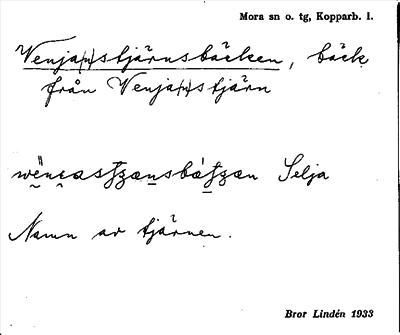 Mora sn o. tg, Kopparb. l.
Venja(n)stjärnsbäcken, bäck
från Venja(n)stjärn
Selja
Namn av tjärnen.
Bror Lindén 1933